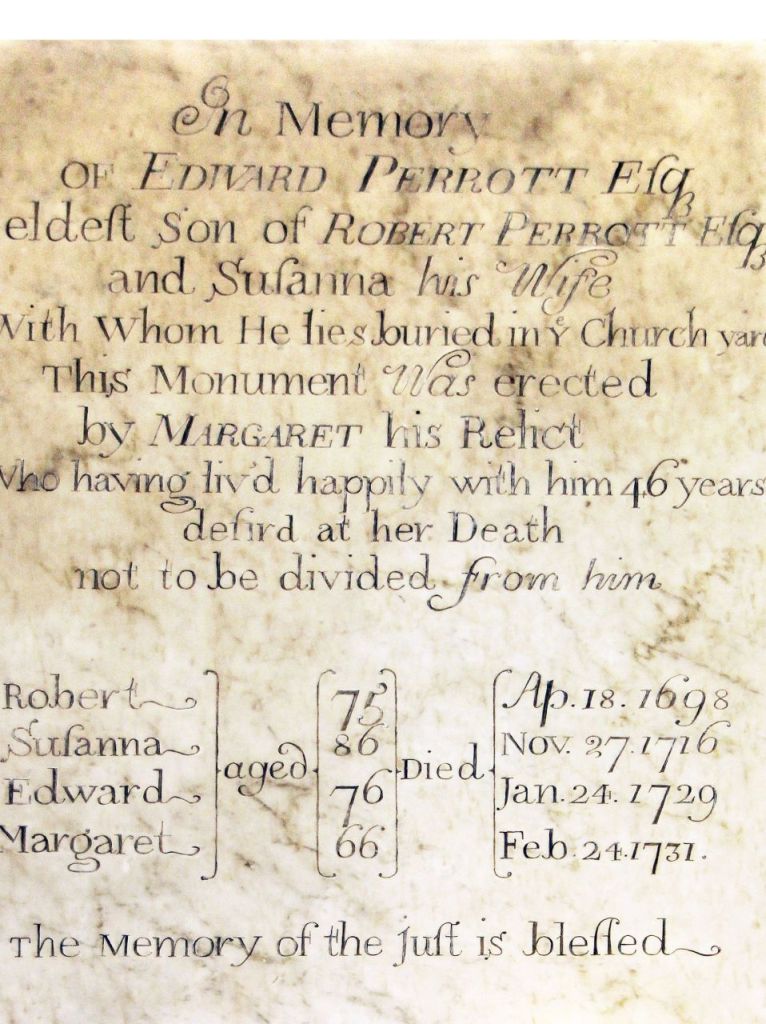 In Memory
OF EDWARD PERROTT Eſqꝫ
eldeſt Son of ROBERT PERROTT Eſqꝫ
and Suſanna his Wife
With Whom He lies buried in yͤ Church yard
This Monument Was erected
by MARGARET his Relict
Who having liv'd happily with him 46 years
deſir'd at her Death
not to be divided from him
Robert 75 Ap. 18. 1698
Suſanna 86 Nov. 27. 1716
aged Died
Edward 76 Jan. 24. 1729
Margaret 66 Feb. 24. 1731.
The Memory of the Juſt is bleſſed